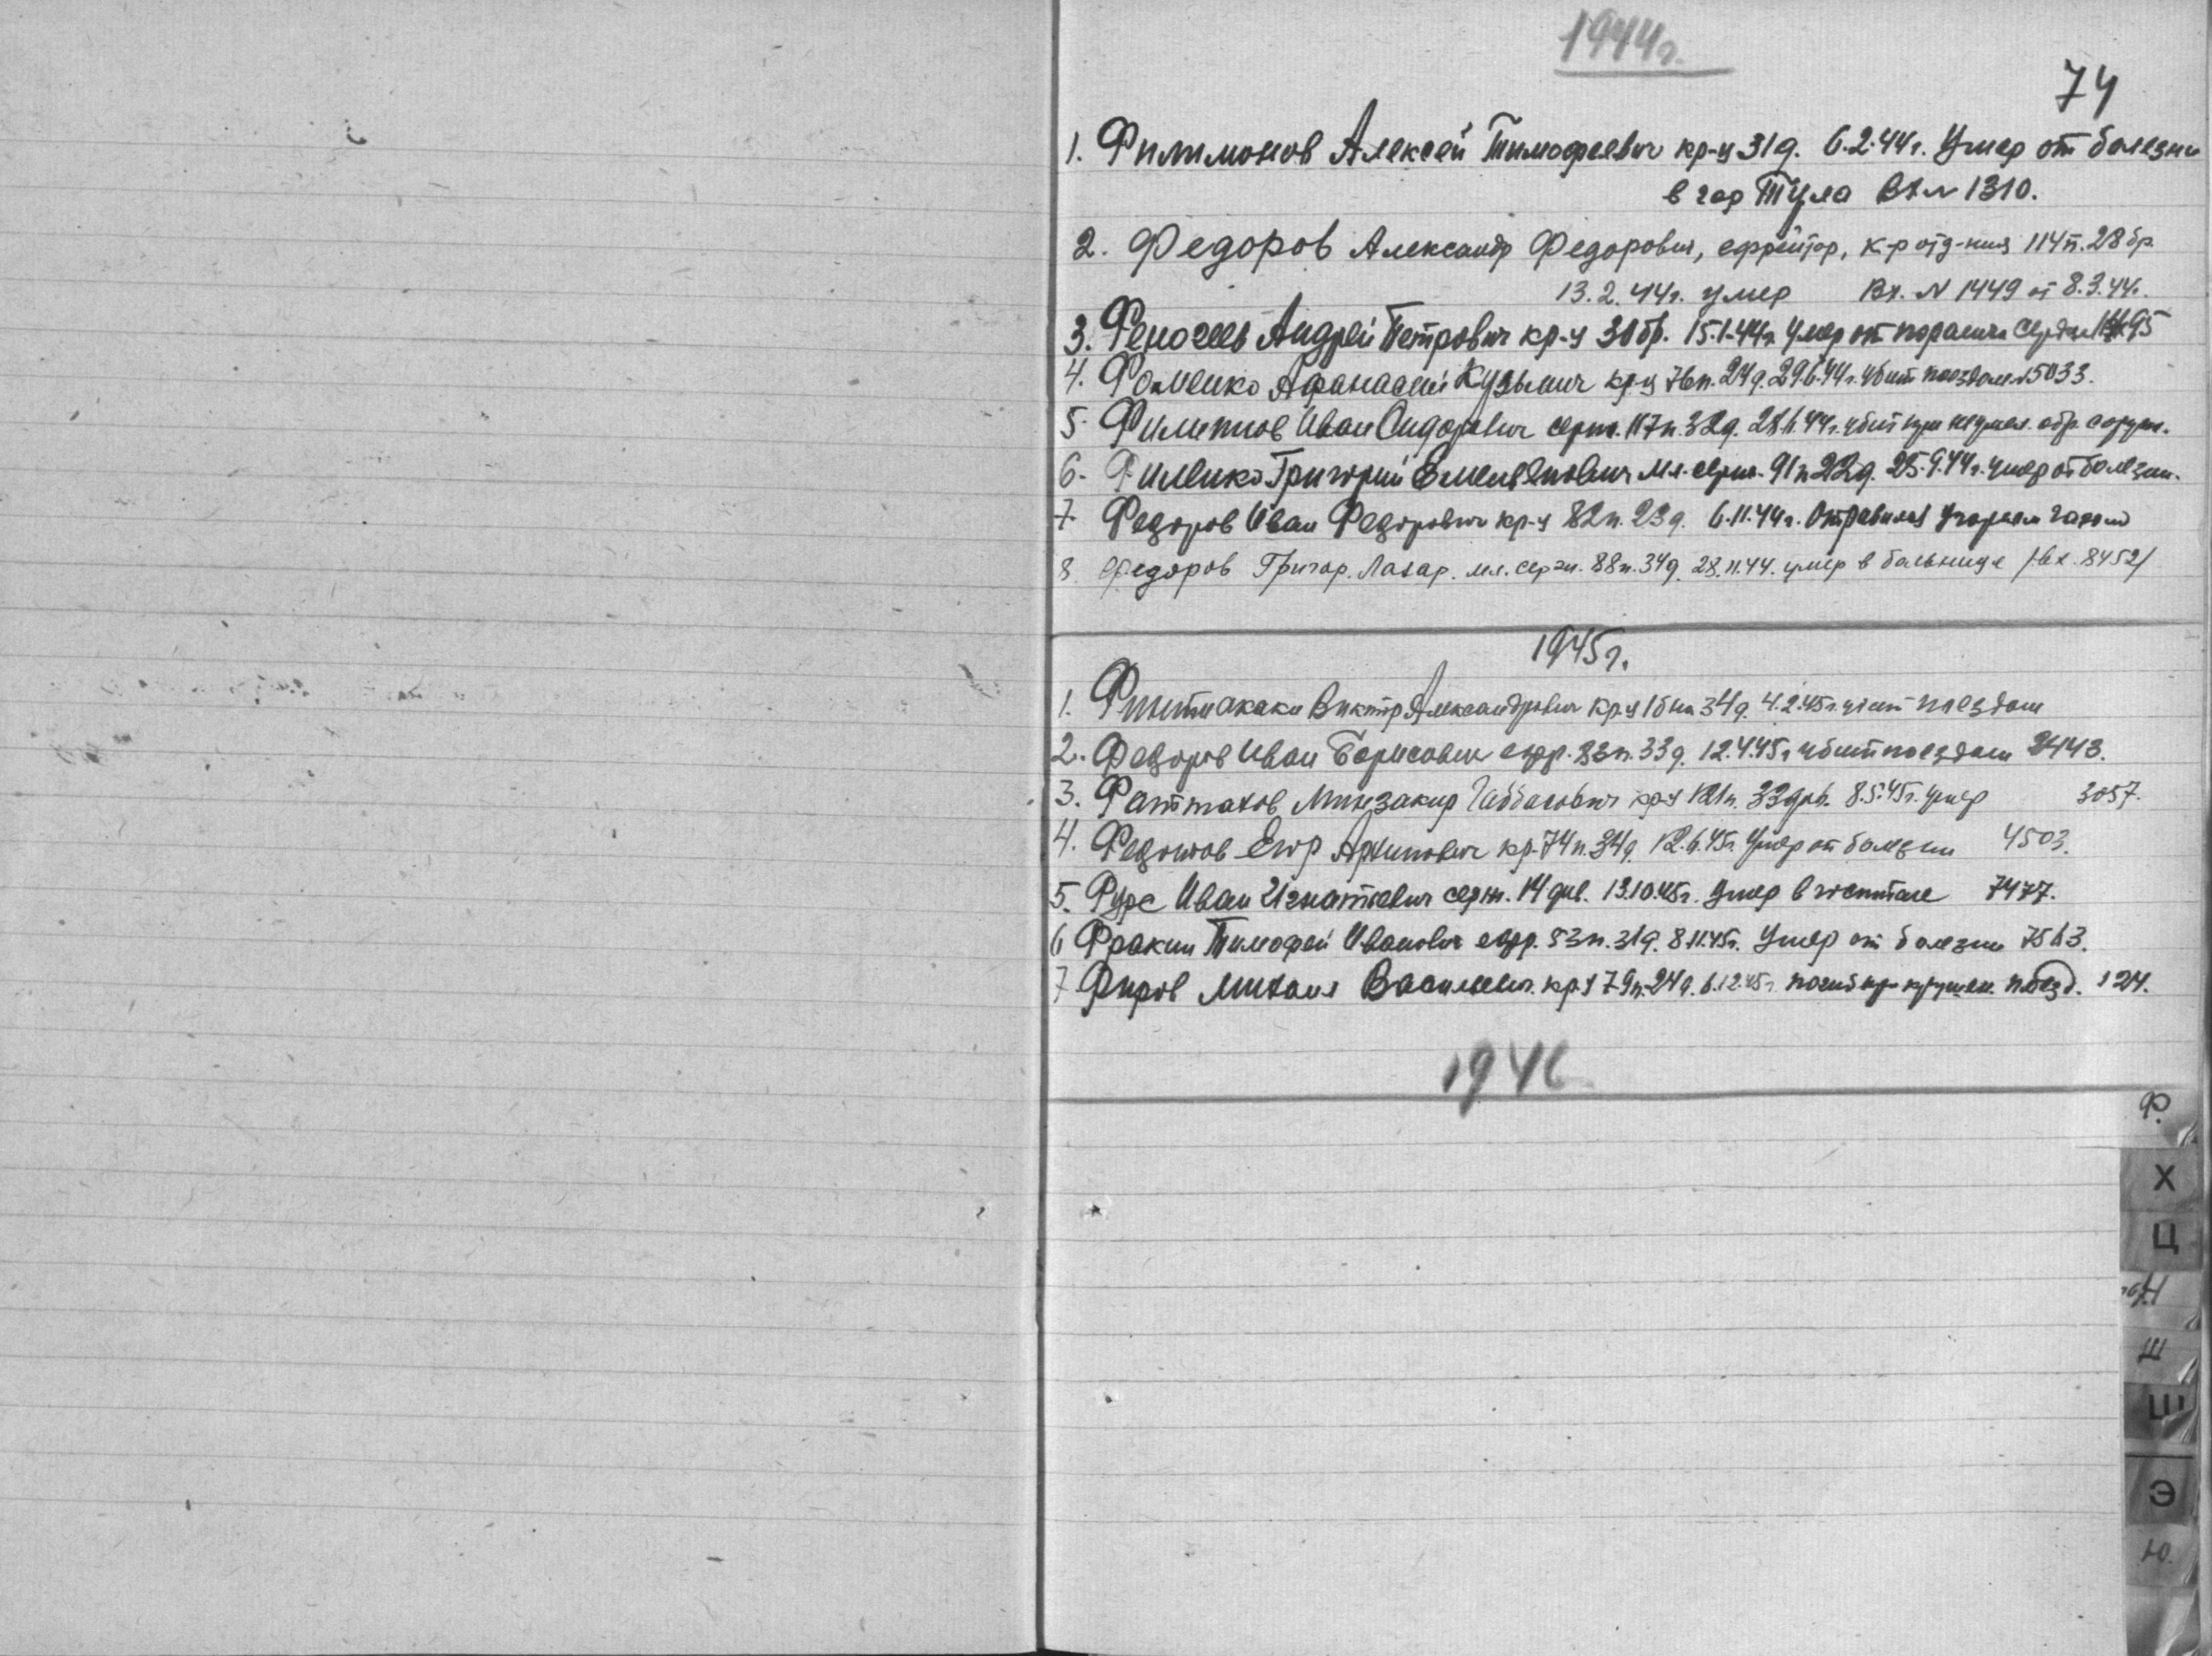 1944г.
74
1. Филимонов Алексей Тимофеевич кр-ц 31д. 6.2.44г. Умер от болезни
в гор Тула Вх № 1310.
2. Федоров Александр Федорович, ефрейтор, к-р отд-ния 114п. 28бр.
13.2.44г. умер Вх. № 1449 от 8.3.44г.
3. Андрей Петрович кр-ц 30бр. 15.1.44г. Умер от
4. Фоменко Афанасий Кузьмич кр-ц 76п. 24д. 29.6.44г. убит поездом 5033.
5. Филиппов Иван Сидорович серж. 117п. 32д. убит при неумел. обр. с оруж.
6. Филенко Григорий Емельянович мл. серж. 91п 22д. 25.9.44г. умер от болезни.
7 Федоров Иван Федорович кр-ц 82п. 23д. 6.11.44г. Отравился угарным газом
8. Федоров Григор. Лазар. мл. серж. 88п. 34д. 28.11.44. умер в больнице /вх. 8452/
1945г.
1. Виктор Александрович кр-ц 34д. 4.2.45г. убит поездом
2. Федоров Иван Борисович ефр. 83п. 33д. 12.4.45г убит поездом 2443.
3. Фаттахов Минзакир кр-ц 121п. 33див. 8.5.45г. умер 3057.
4. Егор Архипович кр. 74п. 34д. 12.6.45г. Умер от болезни 4503.
5. Фурс Иван Игнатьевич серж. 14 див. 13.10.45г. Умер в госпитале 7477.
6 Фракин Тимофей Иванович ефр. 53п. 31д. 8.11.45г. Умер от болезни 7563.
7 Фиров Михаил Васильевич. кр-ц 79п. 24д. 6.12.45г. погиб при крушен. поезд. 124.
1946
Ф.
Х
Ц
Ч
Ш
Щ
Э
Ю.